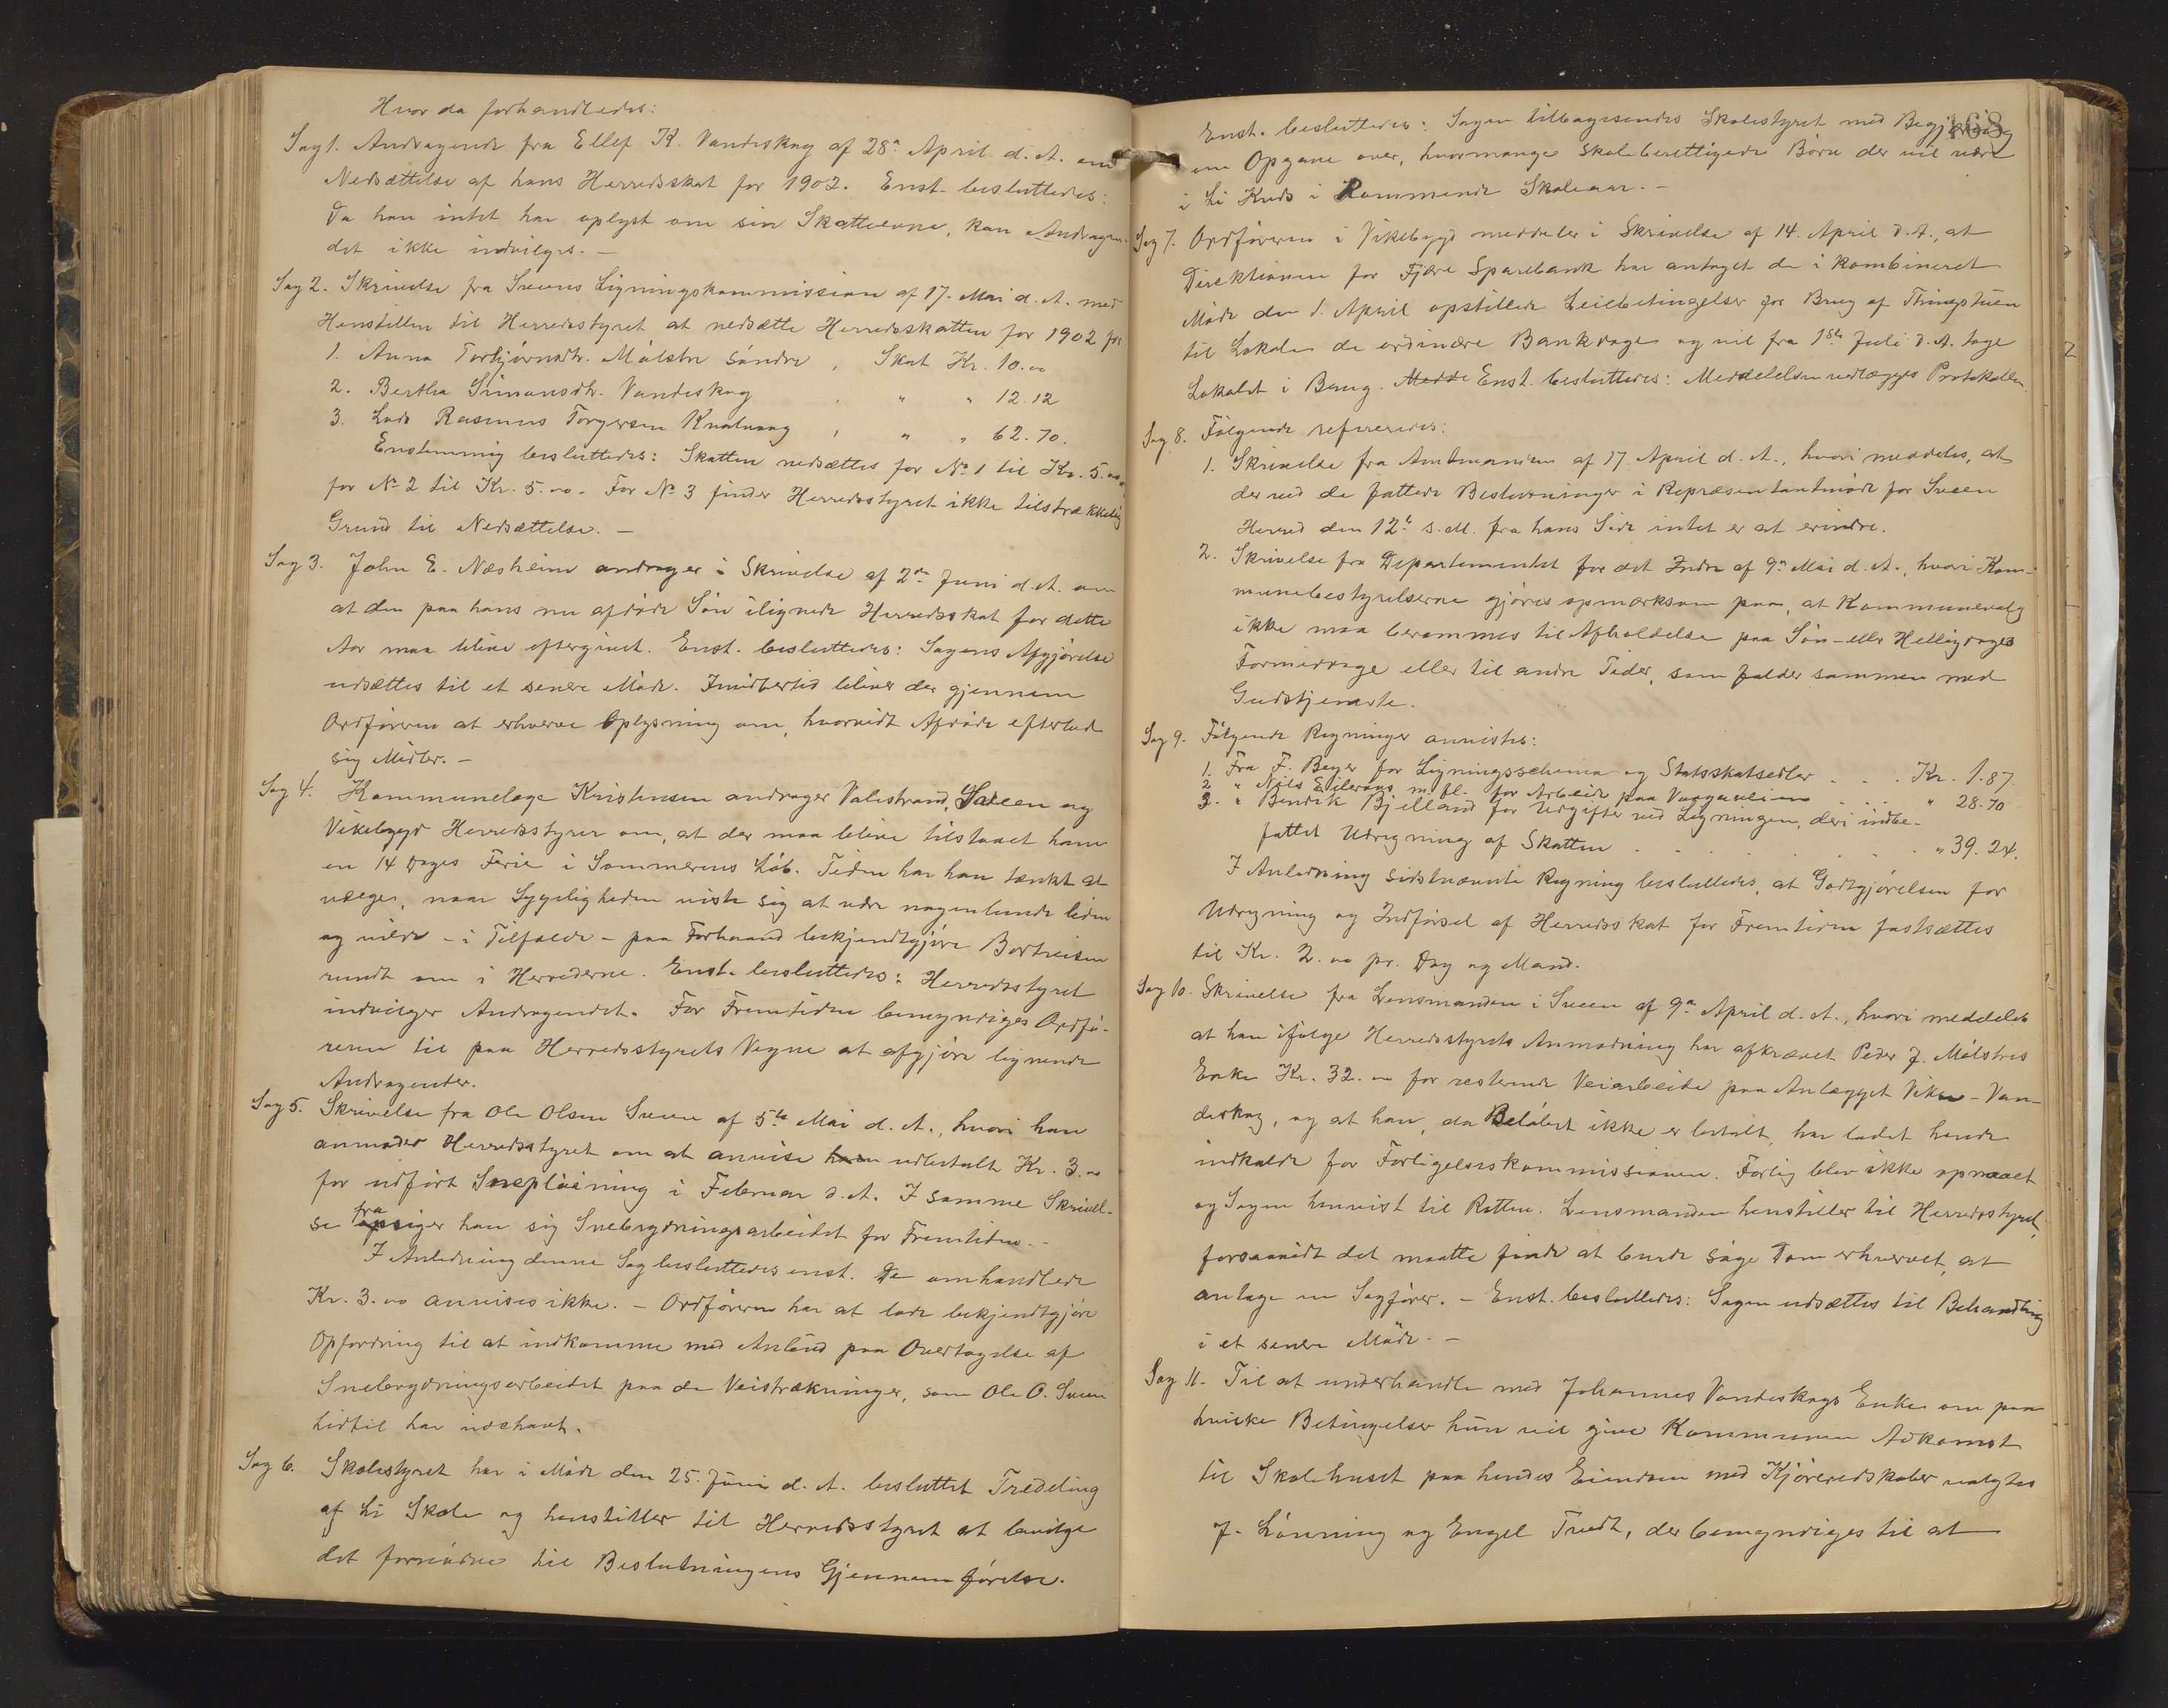 Hvor da forhandledes:
Sag 1. Andragende fra Ellef K. Vandeskog af 28de April d. A. om
Nedsættelse af hans Herredsskat for 1902. Enst. besluttedes:
Da han intet har oplyst om sin Skatteevne, kan Andragen-
det ikke indvilges. —
Sag 2. Skrivelse fra Sveens Ligningskommission af 17. Mai d. A. med
Henstillen til Herredsstyret at nedsætte Herredsskatten for 1902 for
1. Anna Torbjörnsdtr. Målstre söndre, Skat Kr. 10.00
2. Bertha Simonsdtr. Vandeskog , " " 12.12
3. Lods Rasmus Torgersen , " " 62.70.
Enstemmig besluttedes: Skatten nedsættes for No 1 til Kr. 5.00,
for No 2 til Kr. 5.00. For No 3 finder Herredsstyret ikke tilstrækkelig
Grund til Nedsættelse. —
Sag 3. John E. Næsheim andrager i Skrivelse af 2den Juni d. A. om
at den paa hans nu afdöde Sön ilignede Herredsskat for dette
Aar maa blive eftergivet. Enst. besluttedes: Sagens Afgjörelse
udsættes til et senere Möde. Imidlertid bliver der gjennem
Ordföreren at erhverve Oplysning om, hvorvidt Afdöde efterlod
sig Midler. —
Sag 4. Kommunelæge Kristensen andrager Valestrand, Sveen og
Vikebygd Herredsstyrer om, at der maa blive tilstaaet ham
en 14 Dages Ferie i Sommerens Löb. Tiden har han tænkt at
vælge, naar Sygeligheden viste sig at være nogenlunde liden
og vilde – i Tilfælde – paa Forhaand bekjendtgjöre Bortreisen
rundt om i Herrederne. Enst. besluttedes: Herredsstyret
indvilger Andragendet. For Fremtiden bemyndiges Ordfö-
reren til paa Herredsstyrets Vegne at afgjöre lignende
Andragender.
Sag 5. Skrivelse fra Ole Olsen Sveen af 5te Mai d. A., hvori han
anmoder Herredsstyret om at anvise ham udbetalt Kr. 3.00
for udfört Sneplöining i Februar d. A. I samme Skrivel-
se frasiger han sig Snebrydningsarbeidet for Fremtiden. —
I Anledning denne Sag besluttedes enst. De omhandlede
Kr. 3.00 anvises ikke. – Ordföreren har at lade bekjendtgjöre
Opfordring til at indkomme med Anbud paa Overtagelse af
Snebrydningsarbeidet paa de Veistrækninger, som Ole O. Sveen
hidtil har indehavt.
Sag 6. Skolestyret har i Möde den 25. Juni d. A. besluttet Tredeling
af Li Skole og henstiller til Herredsstyret at bevilge
det fornödne til Beslutningens Gjennemförelse.
168
Enst. besluttedes: Sagen tilbagesendes Skolestyret med Begjæring
om Opgave over, hvormange skoleberettigede Börn der vil være
i Li Kreds i kommende Skoleaar. —
Sag 7. Ordföreren i Vikebygd meddeler i Skrivelse af 14. April d. A., at
Direktionen for Fjære Sparebank har antaget de i kombineret
Möde den 1. April opstillede Leiebetingelser for Brug af Thingstuen
til Lokale de ordinære Bankdage og vil fra 1ste Juli d. A. tage
Lokalet i Brug. Enst. besluttedes: Meddelelsen vedlægges Protokollen.
Sag 8. Fölgende refereredes:
1. Skrivelse fra Amtmanden af 17 April d. A., hvori meddeles, at
der ved de fattede Beslutninger i Repræsentantmöde for Sveen
Herred den 12te s. M. fra hans Side intet er at erindre.
2. Skrivelse fra Departementet for det Indre af 9de Mai d. A., hvori Kom-
munebestyrelserne gjöres opmærksom paa, at Kommunevalg
ikke maa berammes til Afholdelse paa Sön- eller Helligdages
Formiddage eller til andre Tider, som falder sammen med
Gudstjeneste.
Sag 9. Fölgende Regninger anvistes:
1. Fra F. Beyer for Ligningsschema og Statsskatsedler . . . Kr. 1.87
2 " Nils Eileraas m. fl. for Arbeide paa . . . " 28.70
3. " Bendik Bjelland for Udgifter ved Ligningen, deri indbe-
fattet Udregning af Skatten . . . . . . " 39.24.
I Anledning sidstnævnte Regning besluttedes, at Godtgjörelsen for
Udregning og Indförsel af Herredsskat for Fremtiden fastsættes
til Kr. 2.00 pr. Dag og Mand.
Sag 10. Skrivelse fra Lensmanden i Sveen af 9de April d. A., hvori meddeles
at han ifölge Herredsstyrets Anmodning har afkrævet Peder J. Målstres
Enke Kr. 32.00 for resterende Veiarbeide paa Anlægget Viken – Van-
deskog, og at han, da Belöbet ikke er betalt, har ladet hende
indkalde for Forligelseskommissionen. Forlig blev ikke opnaaet
og Sagen henvist til Retten. Lensmanden henstiller til Herredsstyret,
forsaavidt det maatte finde at burde söge Dom erhvervet, at
antage en Sagförer. – Enst. besluttedes: Sagen udsættes til Behandling
i et senere Möde. —
Sag 11. Til at underhandle med Johannes Vandeskogs Enke om paa
hvilke Betingelser hun vil give Kommunen Adkomst
til Skolehuset paa hendes Eiendom med Kjöreredskaber valgtes
J. Lönning og Engel Tvedt, der bemyndiges til at